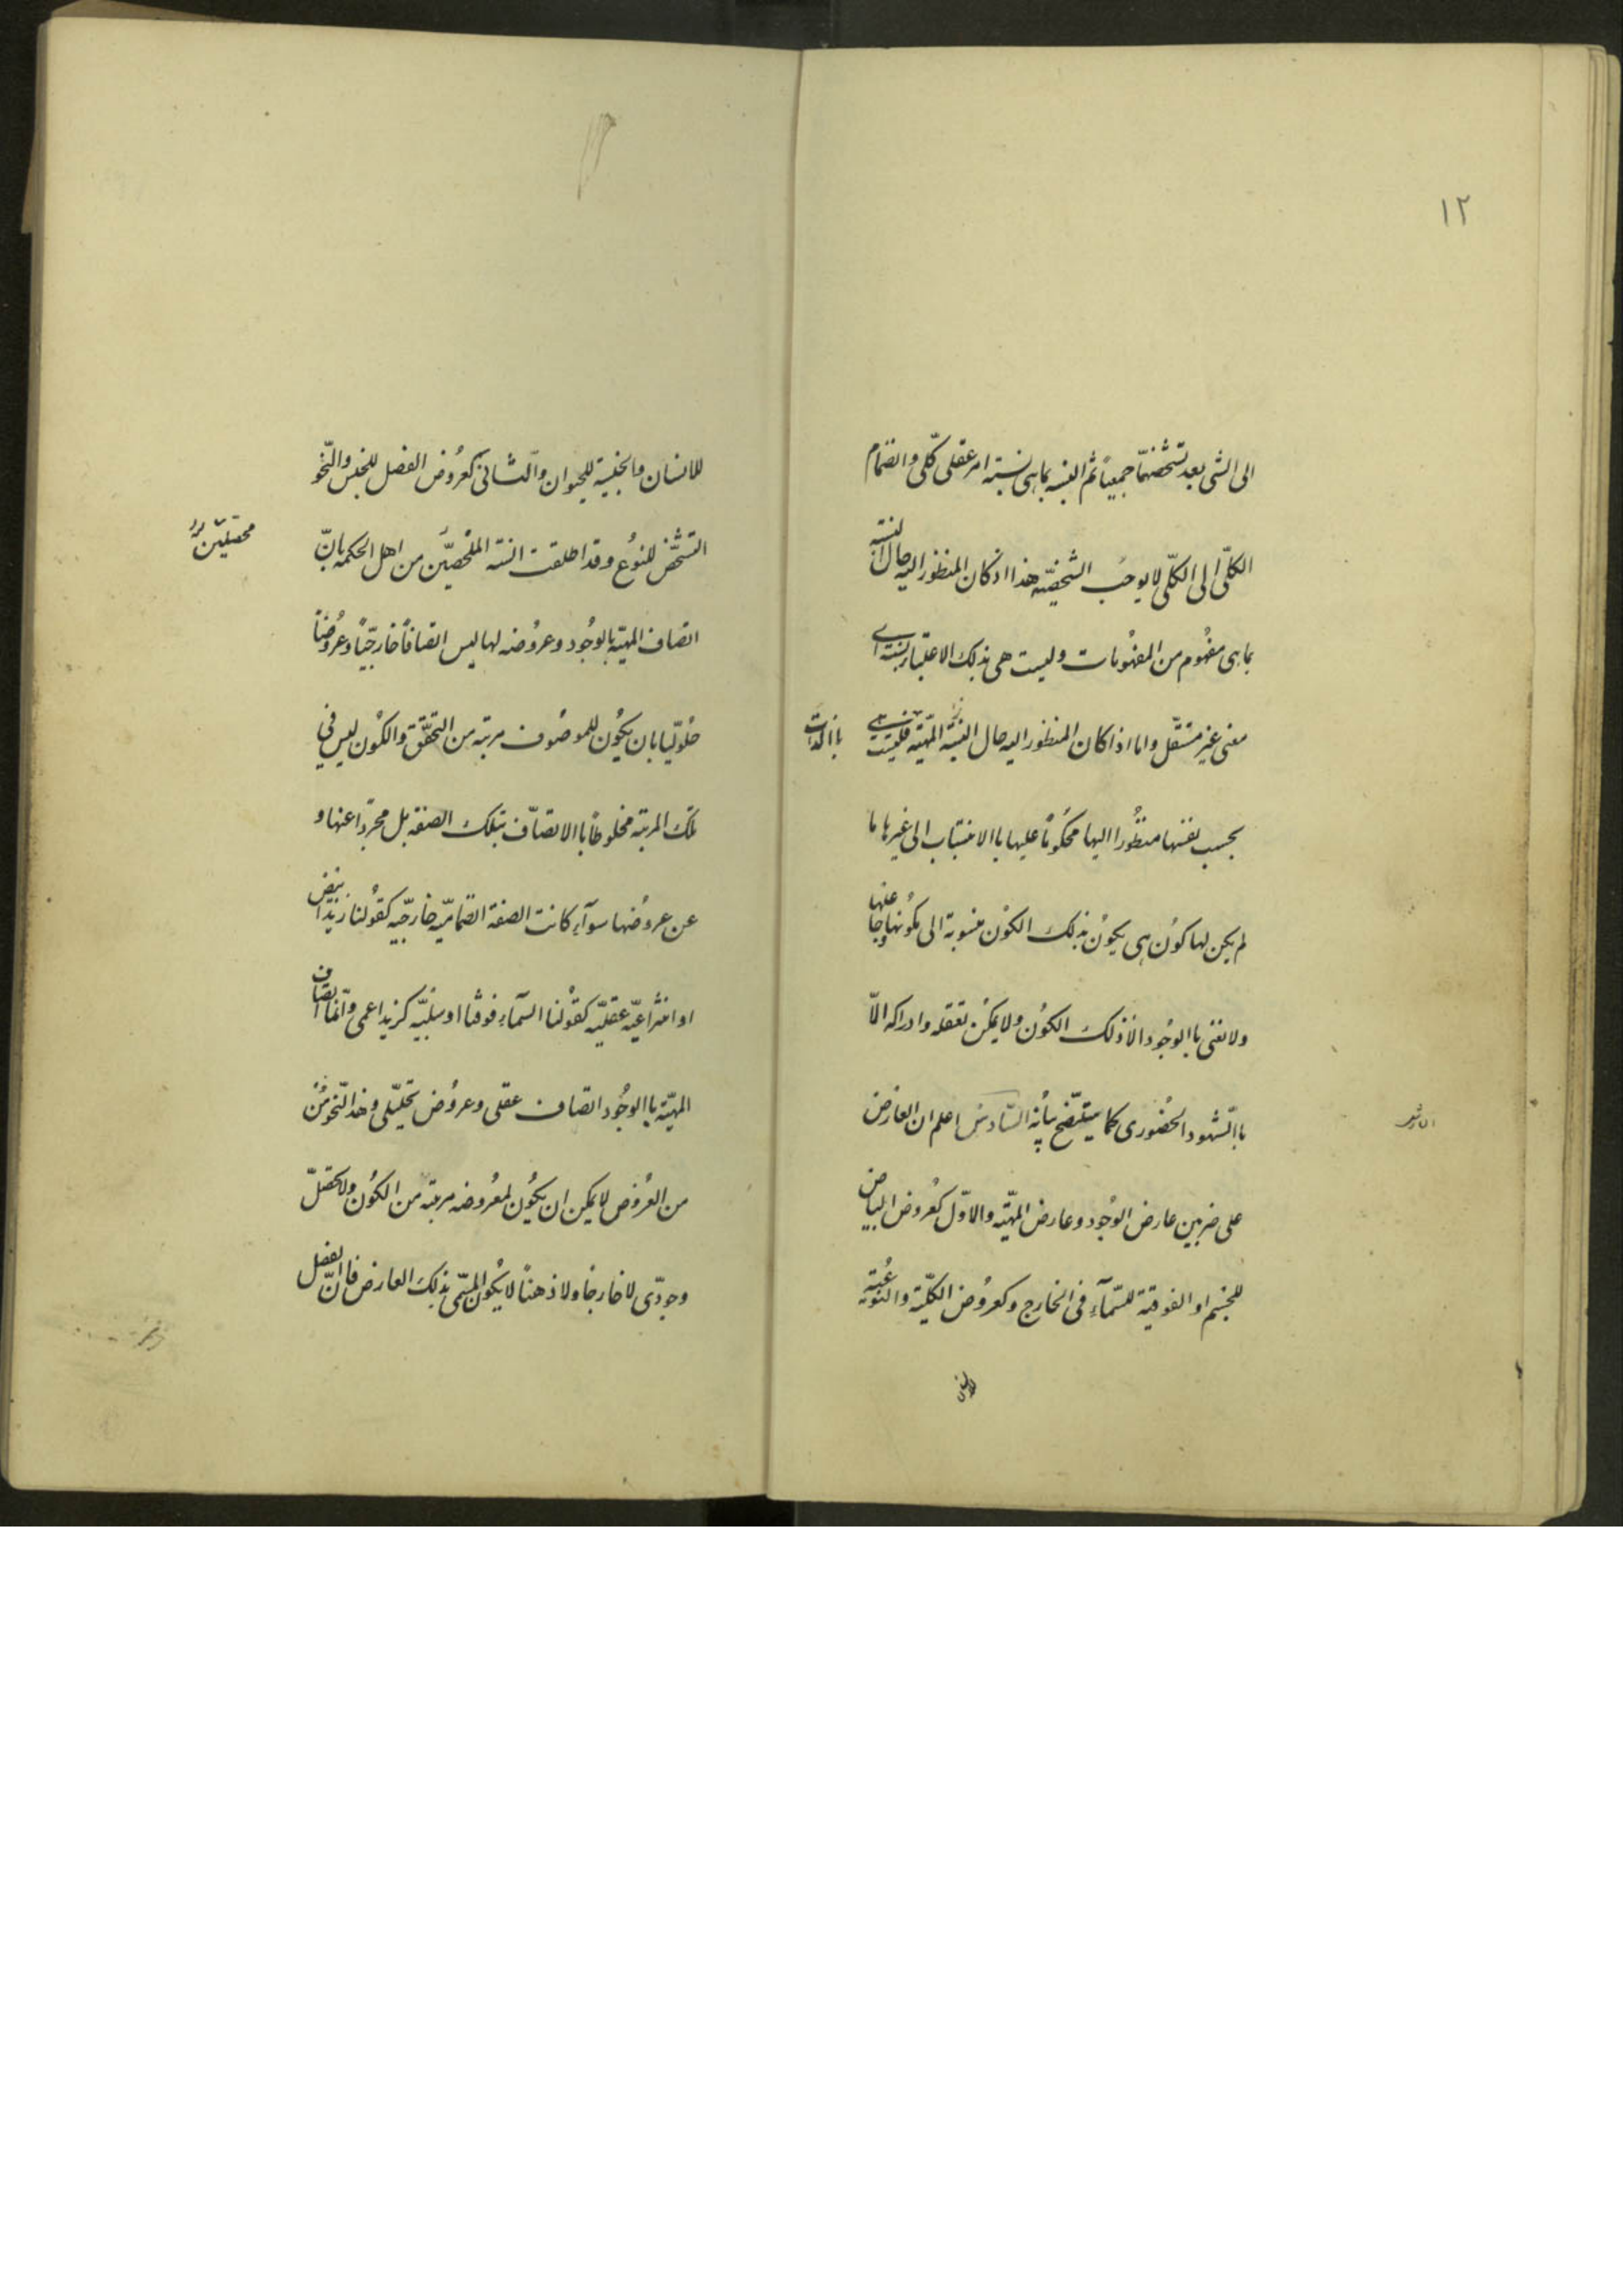 ١٢
الى الشى بعد تشخصهما جميعاً ثم النسبه بما هى نسبته امر عقلى كلّى وانضمام
الكلّى الى الكلّى لا يوجب الشخصيّه هذا اذ كان المنظور اليه حال النسبة
بما هى مفهُوم من المفهُومات وليست هى بذلك الاعتبار نسبته اى
معنى غير مستقل واما اذا كان المنظور اليه حال النسبة المهيّته فليست
باالذات
بحسب نفسها منظُورا اليها محكُوماً عليها باالانتساب الى غيرها ما
لم يكن لها كوُن هى يكوُن بذلك الكوُن منسوبة الى مكوُنها وجاعلها
ولا نعنى باالوجُود الا ذلك الكوُن ولا يمكن تعقله وادراكه الاّ
باالشهود الحضُورى كما سيتضح بيأنه السّادس اعلم ان العارض
على ضربين عارض الوُجود وعارض المهيّته والاوّل كعُروض البياض
للجسم او الفوقية للسّمآء فى الخارج وكعروُض الكليّة والنوُعيّة
للانسان
للانسان والجنسية للحيوان والثانى كعُروُض الفصل للجنس والنحو
التشخّص للنوُع وقد اطلقت السنة المُحصلين من اهل الحكمه بانّ
محصلين
اتصاف المهيّة بالوجُود وعروُضه لها ليس اتصافاً خارجيّاً وعروُضاً
حلُوليّا بان يكوُن للموصُوف مرتبه من التحقّق والكوُن ليس فى
تلك المرتبه مخلوطاً باالاتصاف بتلك الصفة بل مجرداً عنها و
عن عروُضها سوآء كانت الصفة انضماميّه خارجيه كقوُلنا زيد ابيض
او انتزاعيّه عقليّه كقوُلنا السمآء فوقنا او سلبيّه كزيد اعمى وانّما اتصاف
المهيّة باالوجُود اتصاف عقلى وعروُض تحليلى وهذا النحو من
من العرُوض لا يمكن ان يكوُن لمعرُوضه مرتبة من الكوُن ولا تحصّل
وجودّى لا خارجاً ولا ذهناً لا يكوُن المسمّى بذلك العارض فانّ الفصل